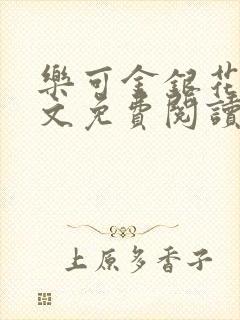 樂可金銀花
文免費閱讀
上原多香子